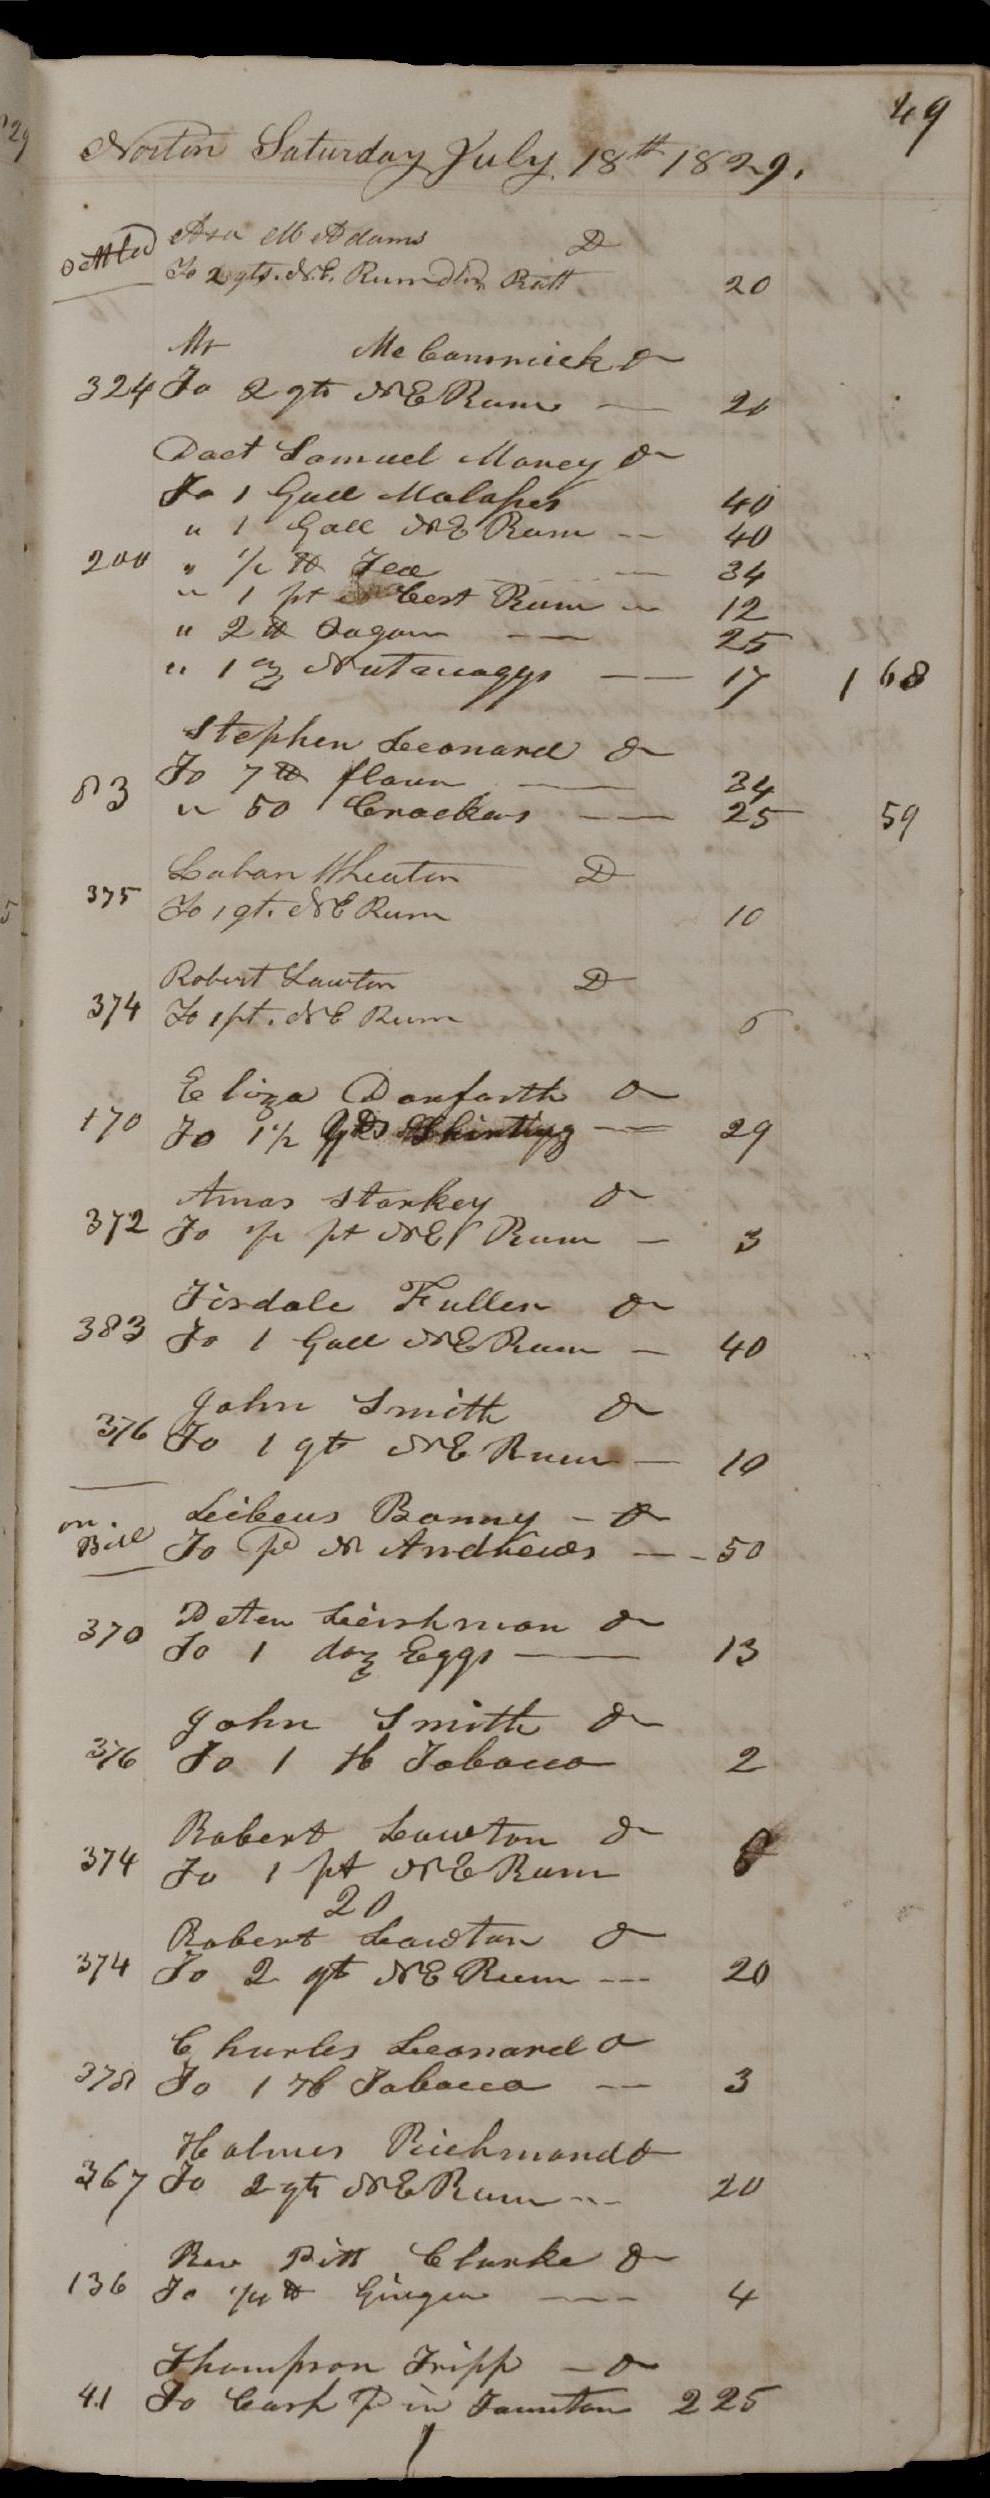 49
Norton Saturday July 18th 1829.
Settled Asa M Adams D
To 2 qts. N.E. Rum Ratt 20
Mr McCommick Dr
324 To 2 qts NE Rum — 20
Doct Samuel Morey Dr
To 1 Gall Molasses 40
" 1 Gall NE Rum -- 40
200 " 1/2 lb Tea — 34
" 1 pt Best Rum " 12
" 2 lb Sugar — 25
" 1 oz Nutmeggs — 17 1 68
Stephen Leonard Dr
83 To 7 lb flour — 34
" 50 Crackers — 25 59
Laban Wheaton D
375 To 1 qt. NE Rum 10
Robert Lawton D
374 To 1 pt. NE Rum 6
Eliza Danforth Dr
170 To 1 1/2 Yds Shirting — 29
Amos Starkey Dr
372 To 1/2 pt NE Rum — 3
Tisdale Fuller Dr
383 To 1 Gall NE Rum — 40
John Smith Dr
376 To 1 qt NE Rum — 10
Leibeus Bonny - Dr
on Bill To pd N Andrews — 50
Peter Leishman Dr
370 To 1 doz Eggs — 13
John Smith Dr
376 To 1 H Tobacco 2
Robert Lawton Dr
374 To 1 pt NE Rum
20
Robert Lawton Dr
374 To 2 qt NE Rum --- 20
Charles Leonard Dr
378 To 1 H Tobacco — 3
Holmes Richmond Dr
367 To 2 qts NE Rum --- 20
Rev Pitt Clarke Dr
136 To 1/4 lb Ginger — 4
Thompson Tripp - Dr
41 To Cash P in Taunton 2 25